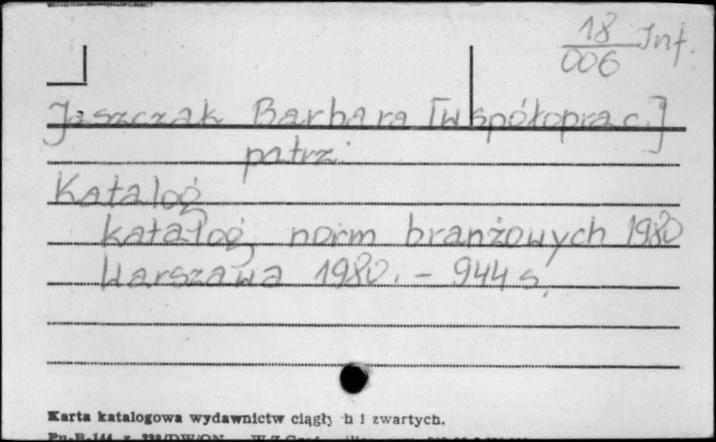 18 Inf.
006
Jaszczak Barbara [współoprac.]
patrz:
Katalog
katalog norm branżowych 1980
Warszawa 1980. - 944 s.
Karta katalogowa wydawnictw ciągły h i zwartych.
Pu-B-144 z. 238/DW/ON